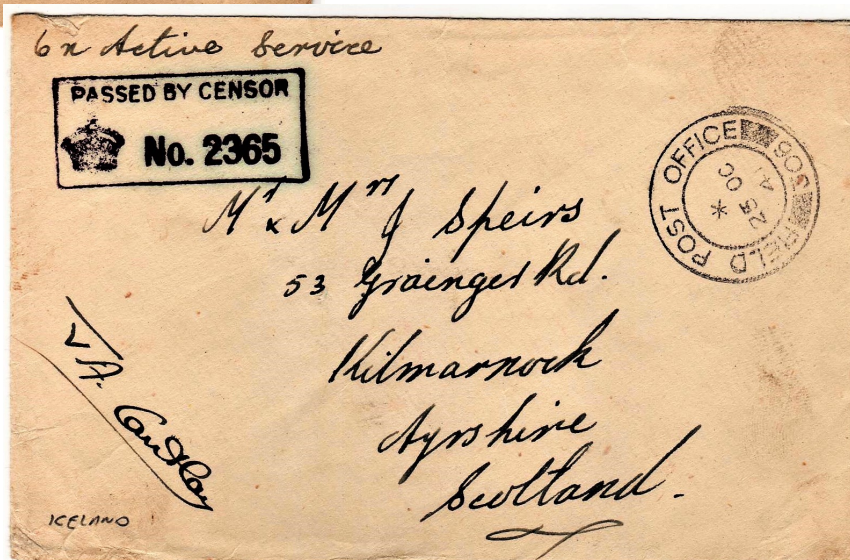 On Active Service
PASSED BY CENSOR
No. 2365
FIELD POST OFFICE 306
*
25 OC
41
Mr & Mrs J Speirs
53 Grainger Rd.
Kilmarnock
Ayrshire
Scotland.
JA.
ICELAND